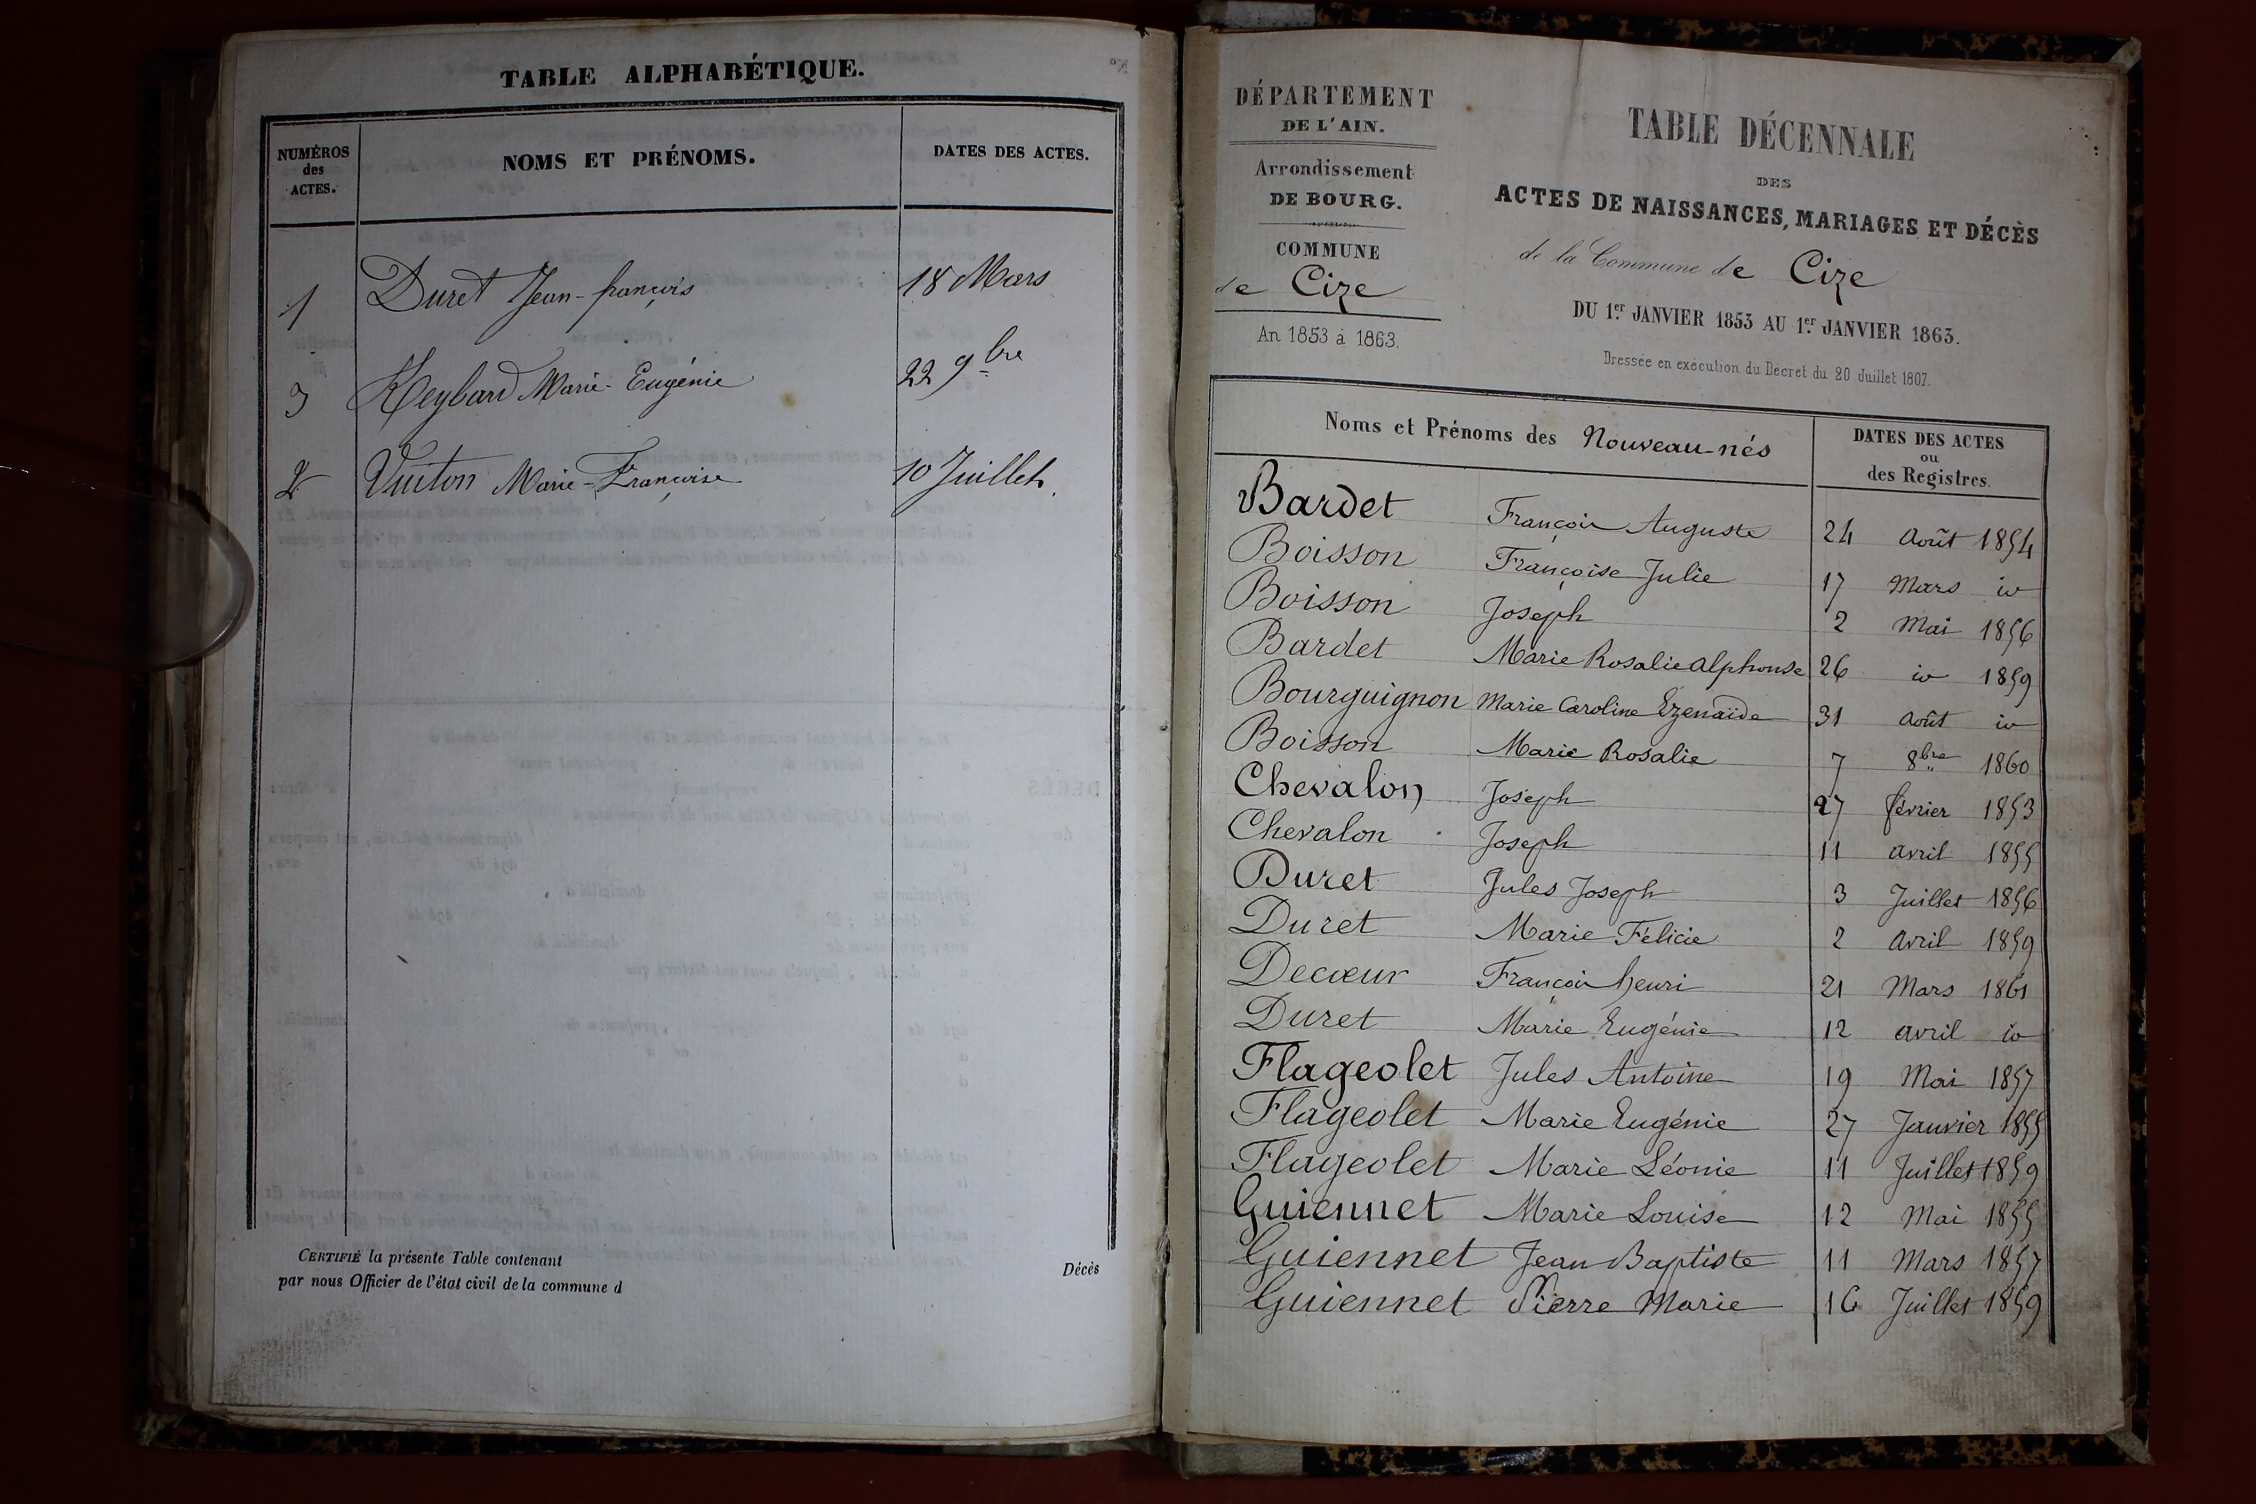 TABLE ALPHABÉTIQUE.
NUMÉROS des ACTES.
NOMS ET PRÉNOMS.
DATES DES ACTES.
1 Duret Jean-françois 18 Mars
3 Reybard Marie-Eugénie 22 9bre
2 Vuiton Marie-Françoise 10 Juillet.
CERTIFIÉ la présente Table contenant Décès
par nous Officier de l'état civil de la commune d
DÉPARTEMENT
DE L'AIN.
Arrondissement
DE BOURG.
COMMUNE
de Cize
An 1853 à 1863.
TABLE DÉCENNALE
DES
ACTES DE NAISSANCES, MARIAGES ET DÉCÈS
de la Commune de Cize
DU 1er JANVIER 1853 AU 1er JANVIER 1863.
Dressée en exécution du Décret du 20 Juillet 1807.
Noms et Prénoms des Nouveau-nés
DATES DES ACTES
ou
des Registres.
Bardet François Auguste 24 Août 1854
Boisson Françoise Julie 17 Mars id
Boisson Joseph 2 Mai 1856
Bardet Marie Rosalie Alphonse 26 id 1859
Bourguignon Marie Caroline Ezenaïde 31 Août id
Boisson Marie Rosalie 7 8bre 1860
Chevalon Joseph 27 février 1853
Chevalon Joseph 11 avril 1855
Duret Jules Joseph 3 Juillet 1856
Duret Marie Félicie 2 avril 1859
Decœur François henri 21 Mars 1861
Duret Marie Eugénie 12 avril id
Flageolet Jules Antoine 19 Mai 1857
Flageolet Marie Eugénie 27 Janvier 1855
Flageolet Marie Léonie 11 Juillet 1859
Guiennet Marie Louise 12 Mai 1855
Guiennet Jean Baptiste 11 Mars 1857
Guiennet Pierre Marie 16 Juillet 1859